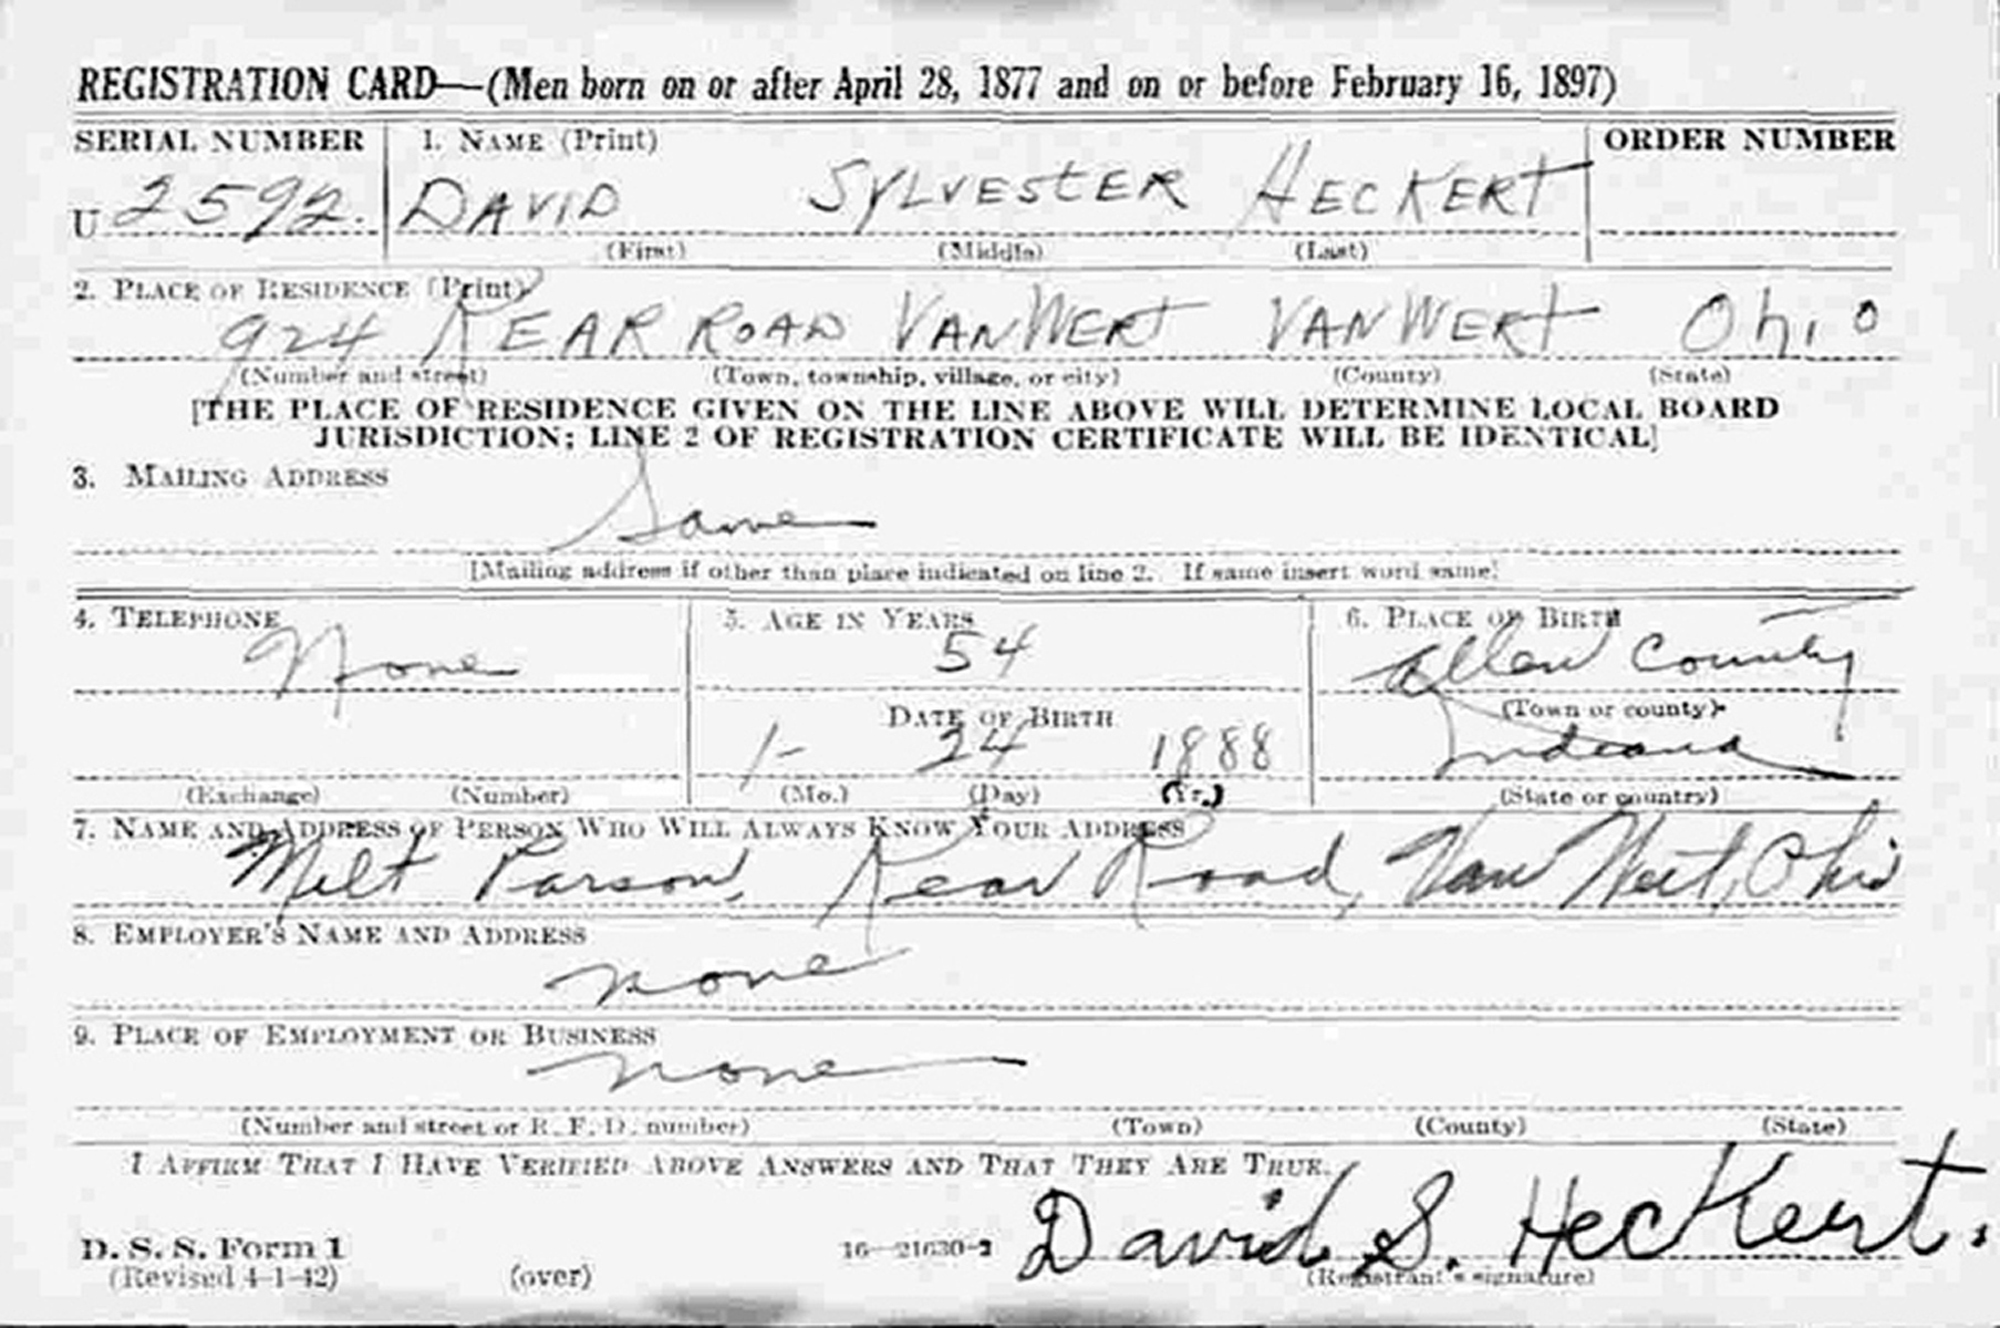 REGISTRATION CARD—(Men born on or after April 28, 1877 and on or before February 16, 1897)
SERIAL NUMBER 1. NAME (Print) ORDER NUMBER
U 2592. DAVID SYLVESTER HECKERT
(First) (Middle) (Last)
2. PLACE OF RESIDENCE (Print)
924 KEAR ROAD VAN WERT VAN WERT Ohio
(Number and street) (Town, township, village, or city) (County) (State)
[THE PLACE OF RESIDENCE GIVEN ON THE LINE ABOVE WILL DETERMINE LOCAL BOARD
JURISDICTION; LINE 2 OF REGISTRATION CERTIFICATE WILL BE IDENTICAL]
3. MAILING ADDRESS
Same
[Mailing address if other than place indicated on line 2. If same insert word same]
4. TELEPHONE 5. AGE IN YEARS 6. PLACE OF BIRTH
None 54 Allen County
DATE OF BIRTH (Town or county)
1- 24 1888 Indiana
(Exchange) (Number) (Mo.) (Day) (Yr.) (State or country)
7. NAME AND ADDRESS OF PERSON WHO WILL ALWAYS KNOW YOUR ADDRESS
Milt Parson, Kear Road, Van Wert, Ohio
8. EMPLOYER'S NAME AND ADDRESS
none
9. PLACE OF EMPLOYMENT OR BUSINESS
none
(Number and street or R. F. D. number) (Town) (County) (State)
I AFFIRM THAT I HAVE VERIFIED ABOVE ANSWERS AND THAT THEY ARE TRUE.
David S. Heckert.
D. S. S. Form 1 16—21630-2
(Revised 4-1-42) (over) (Registrant's signature)